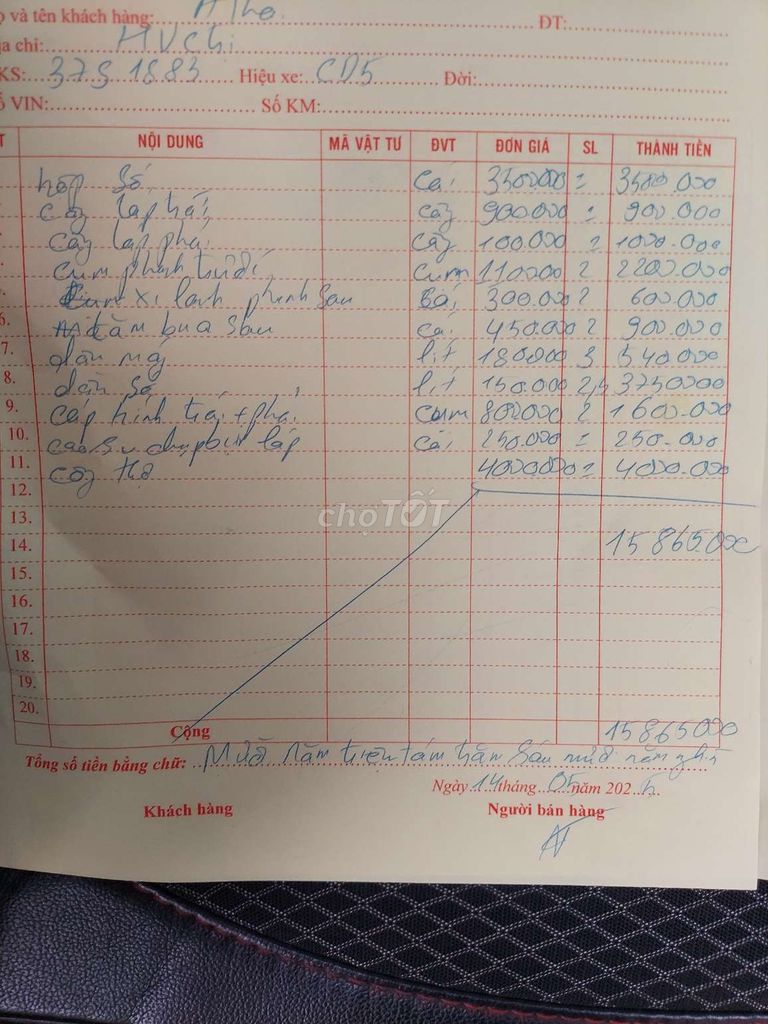 ọ và tên khách hàng: A Thọ ĐT:
ịa chỉ: HVChi
KS: 37S 1883 Hiệu xe: CD5 Đời:
Ố VIN: Số KM:
T NỘI DUNG MÃ VẬT TƯ ĐVT ĐƠN GIÁ SL THÀNH TIỀN
hộp số cái 3500000 = 3500.000
cây láp hái cây 900.000 = 900.000
cây láp phải cây 100.000 = 1000.000
cụm phanh cụm 110000 2 2200.000
xi lanh phanh sau Bái 300.000 2 600.000
6. tăm bua sau cái 450.000 2 900.000
7. dầu máy lít 180000 3 540.000
8. dầu số lít 150.000 2,5 3750000
9. cáp hình trái + phải cụm 800000 2 1600.000
10. cao su chụp bụi láp cái 250.000 = 250.000
11. công thợ 4000000 = 4000.000
12.
13.
14. 15865.000
15.
16.
17.
18.
19.
20.
Cộng 15865000
Tổng số tiền bằng chữ: Mười năm triệu tám trăm sáu mươi năm nghìn
Ngày 14 tháng 05 năm 2025
Khách hàng Người bán hàng
chợTỐT